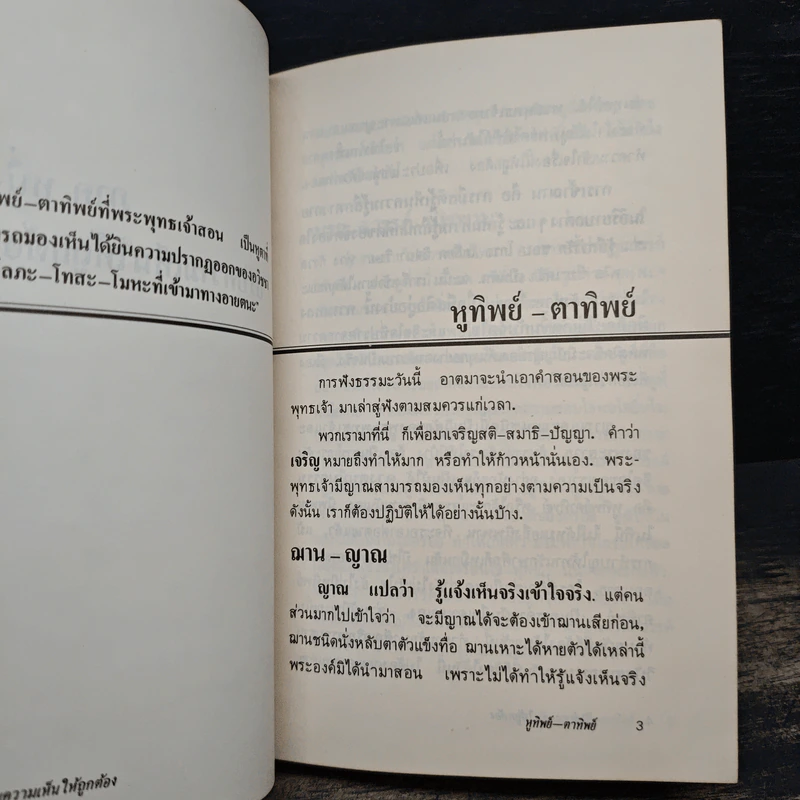 พย์–ตาทิพย์ที่พระพุทธเจ้าสอน เป็นหูตาที่
รถมองเห็นได้ยินความปรากฏออกของอวิชชา
ลภะ–โทสะ–โมหะที่เข้ามาทางอายตนะ"
ความเห็นให้ถูกต้อง
หูทิพย์ – ตาทิพย์
การฟังธรรมะวันนี้ อาตมาจะนำเอาคำสอนของพระ
พุทธเจ้า มาเล่าสู่ฟังตามสมควรแก่เวลา.
พวกเรามาที่นี่ ก็เพื่อมาเจริญสติ–สมาธิ–ปัญญา. คำว่า
เจริญ หมายถึงทำให้มาก หรือทำให้ก้าวหน้านั่นเอง. พระ-
พุทธเจ้ามีญาณสามารถมองเห็นทุกอย่างตามความเป็นจริง
ดังนั้น เราก็ต้องปฏิบัติให้ได้อย่างนั้นบ้าง.
ฌาน – ญาณ
ญาณ แปลว่า รู้แจ้งเห็นจริงเข้าใจจริง. แต่คน
ส่วนมากไปเข้าใจว่า จะมีญาณได้จะต้องเข้าฌานเสียก่อน,
ฌานชนิดนั่งหลับตาตัวแข็งทื่อ ฌานเหาะได้หายตัวได้เหล่านี้
พระองค์มิได้นำมาสอน เพราะไม่ได้ทำให้รู้แจ้งเห็นจริง
หูทิพย์–ตาทิพย์ 3